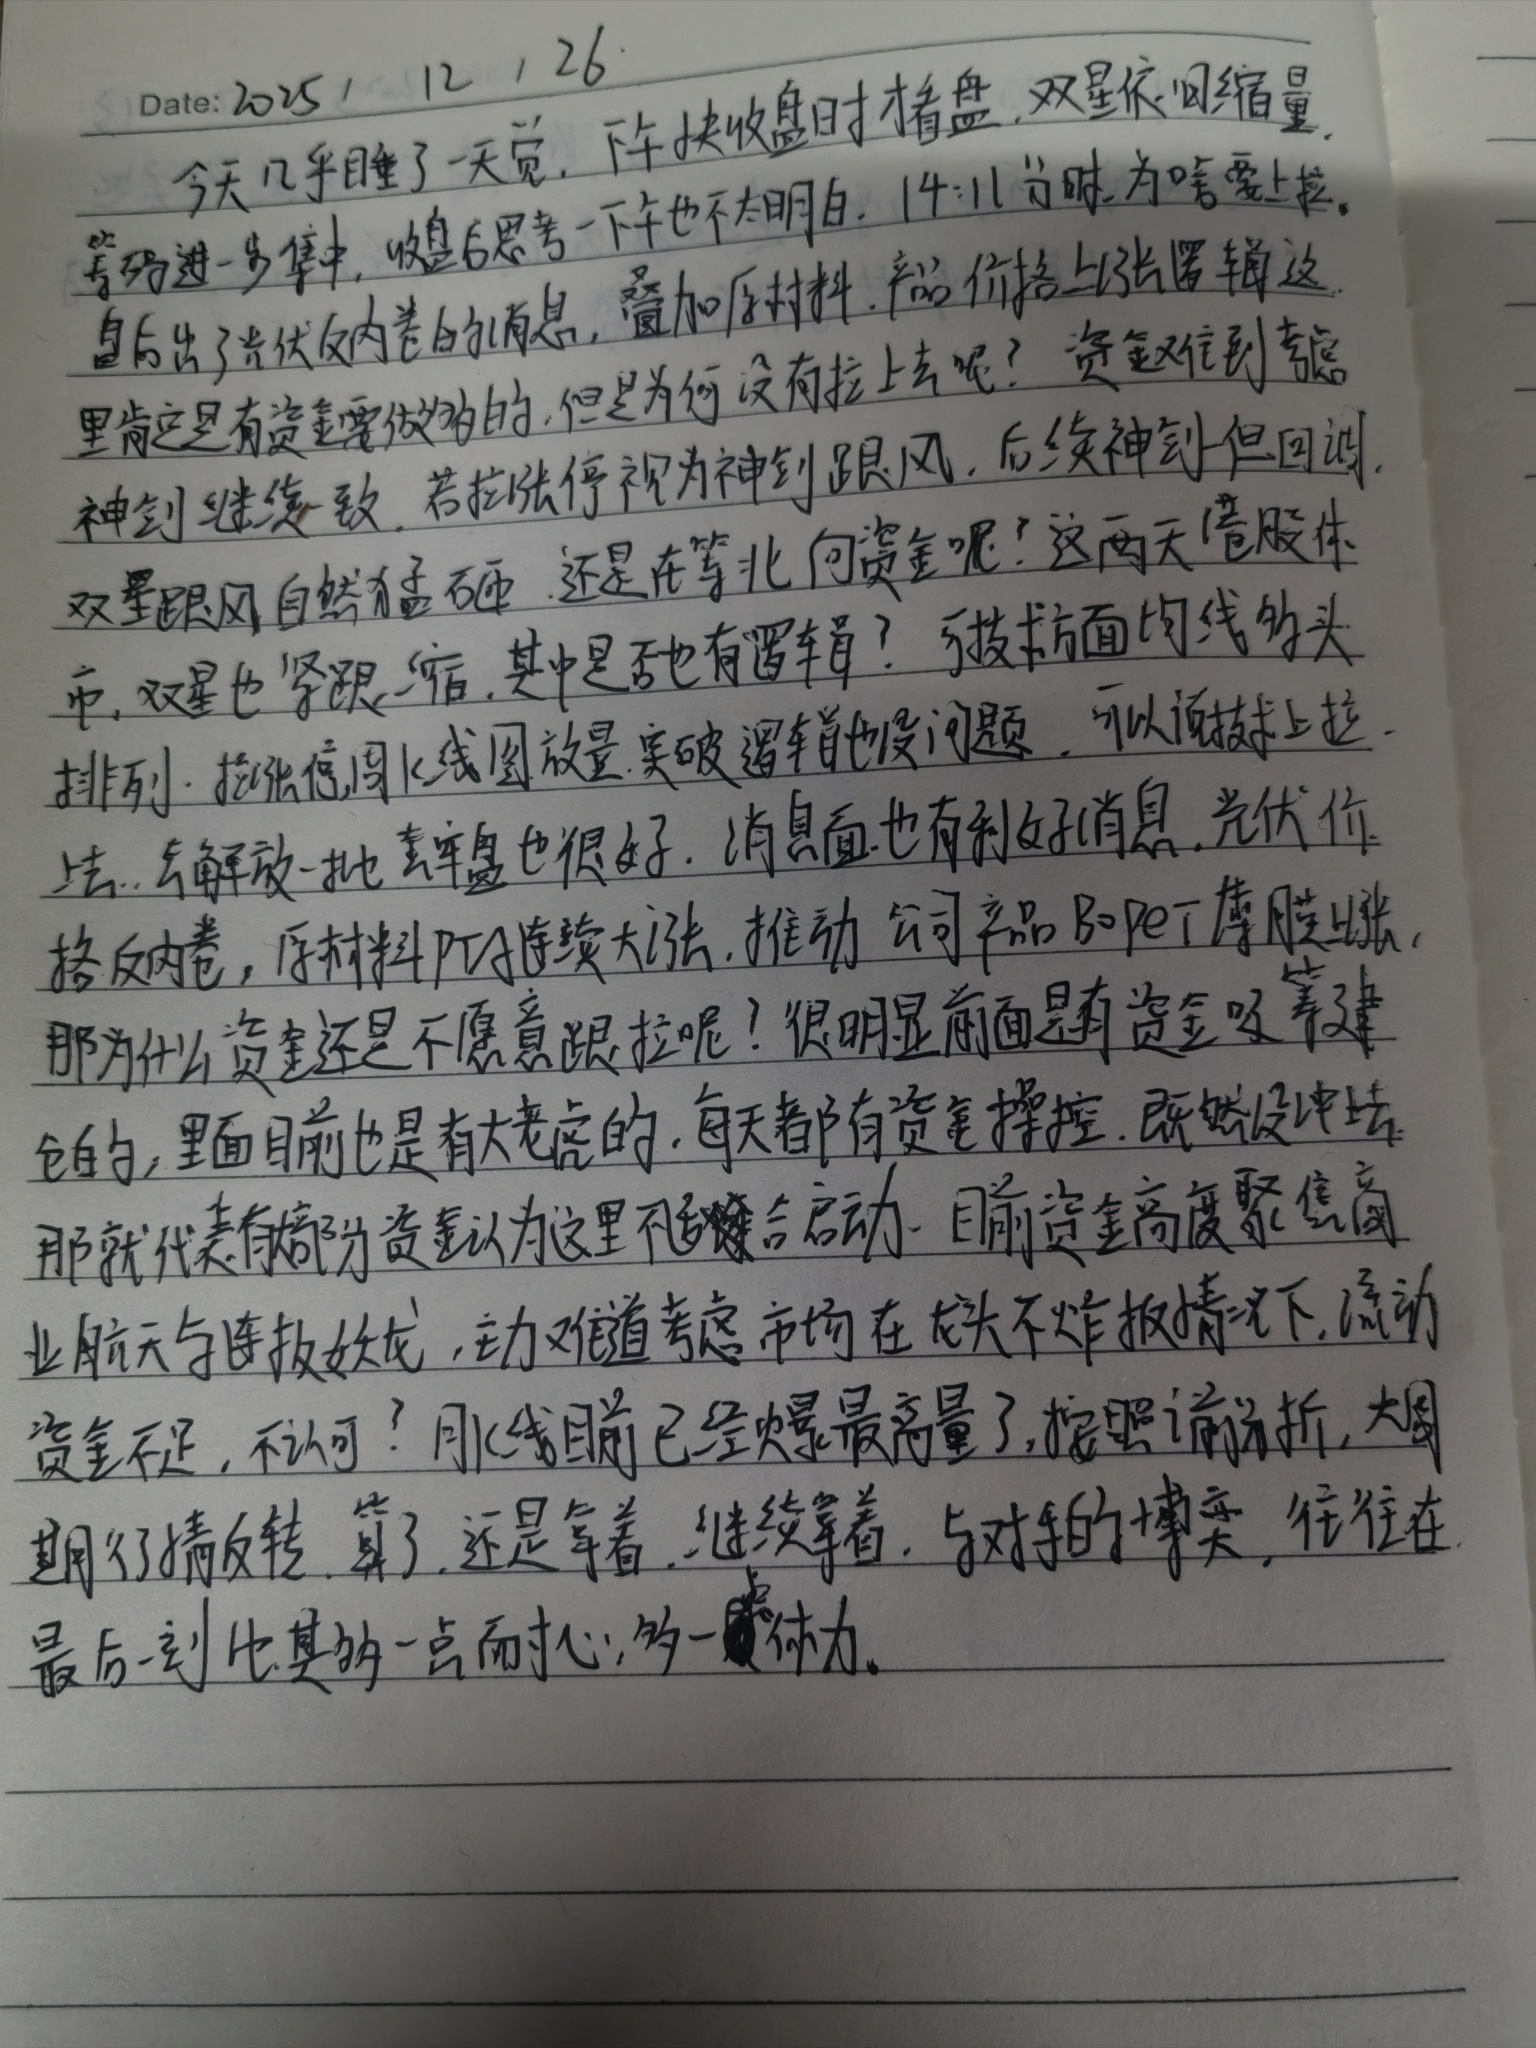 Date: 2025, 12, 26.
今天几乎睡了一天觉.下午快收盘时才看盘.双星依旧缩量.
筹码进一步集中,收盘后思考一下午也不太明白.14:11分时为啥要上拉。
盘后出了光伏反内卷的消息,叠加原材料.产品价格上涨逻辑这
里肯定是有资金要做多的.但是为何没有拉上去呢?资金难到考虑
神剑继续一致.若拉涨停视为神剑跟风.后续神剑一但回调.
双星跟风自然猛砸.还是在等北向资金呢?这两天港股休
市,双星也紧跟缩.其中是否也有逻辑?技术方面均线多头
排列.拉涨停,周K线图放量突破逻辑也没问题.可以说技术上拉
上去..去解放一批套牢盘也很好.消息面也有利好消息.光伏价
格反内卷,原材料PTA连续大涨.推动公司产品BOPET薄膜上涨,
那为什么资金还是不愿意跟拉呢?很明显前面是有资金吸筹建
仓的,里面目前也是有大老虎的.每天都有资金操控.既然没冲上去
那就代表有部分资金认为这里不适合启动.目前资金高度聚焦商
业航天与连板妖龙,主力难道考虑市场在龙头不炸板情况下.流动
资金不足,不认可?月K线目前已经爆最高量了,按照之前分析.大周
期行情反转.算了.还是拿着.继续拿着.与对手的博弈,往往在
最后一刻比其多一点耐心,多一点体力。